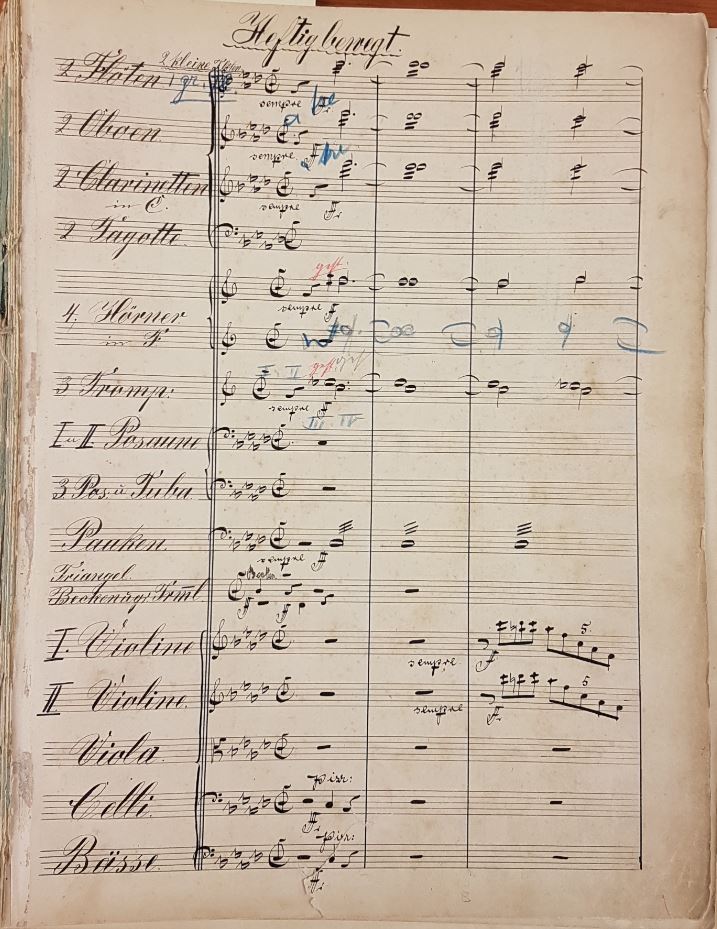 Heftig bewegt.
2 Flöten 2 kleine Flöten
sempre ff
2 Oboen
sempre ff
2 Clarinetten
in C.
sempre ff
2 Fagotte
gest.
4. Hörner
in F.
sempre ff
I II gest.
3 Tromp:
sempre ff
III IV
I u II Posaune
3. Pos. u Tuba
Pauken
sempre ff
Triangel
Becken u gr Trml
ff
I. Violine
sempre ff 5
II Violine
sempre ff 5
Viola
Celli pizz:
ff
Bässe pizz:
ff